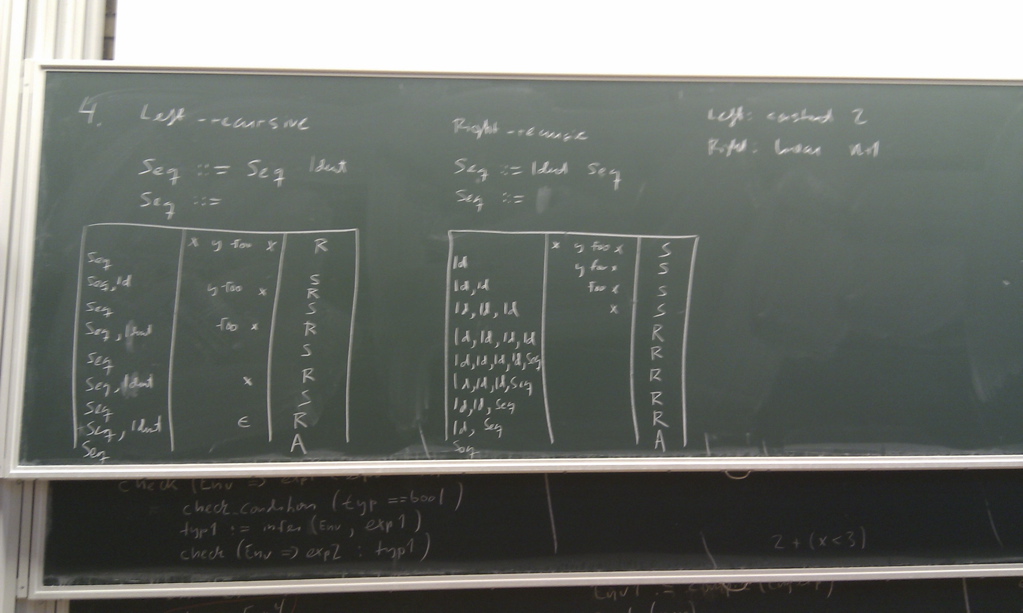 4. Left-recursive
Seq ::= Seq Ident
Seq ::=
x y foo x R
Seq
Seq, Id y foo x S
R
Seq S
Seq, Ident foo x R
Seq S
Seq, Ident x R
Seq S
Seq, Ident ε R
Seq A
Right-recursive
Seq ::= Ident Seq
Seq ::=
x y foo x S
Id y foo x S
Id, Id foo x S
Id, Id, Id x S
Id, Id, Id, Id R
Id, Id, Id, Id, Seq R
Id, Id, Id, Seq R
Id, Id, Seq R
Id, Seq R
Seq A
Left: constant 2
Right: linear n+1
check (Env => exp1
= check_condition (typ == bool)
typ1 := infer (Env, exp1)
check (Env => exp2 : typ1)
2 + (x < 3)